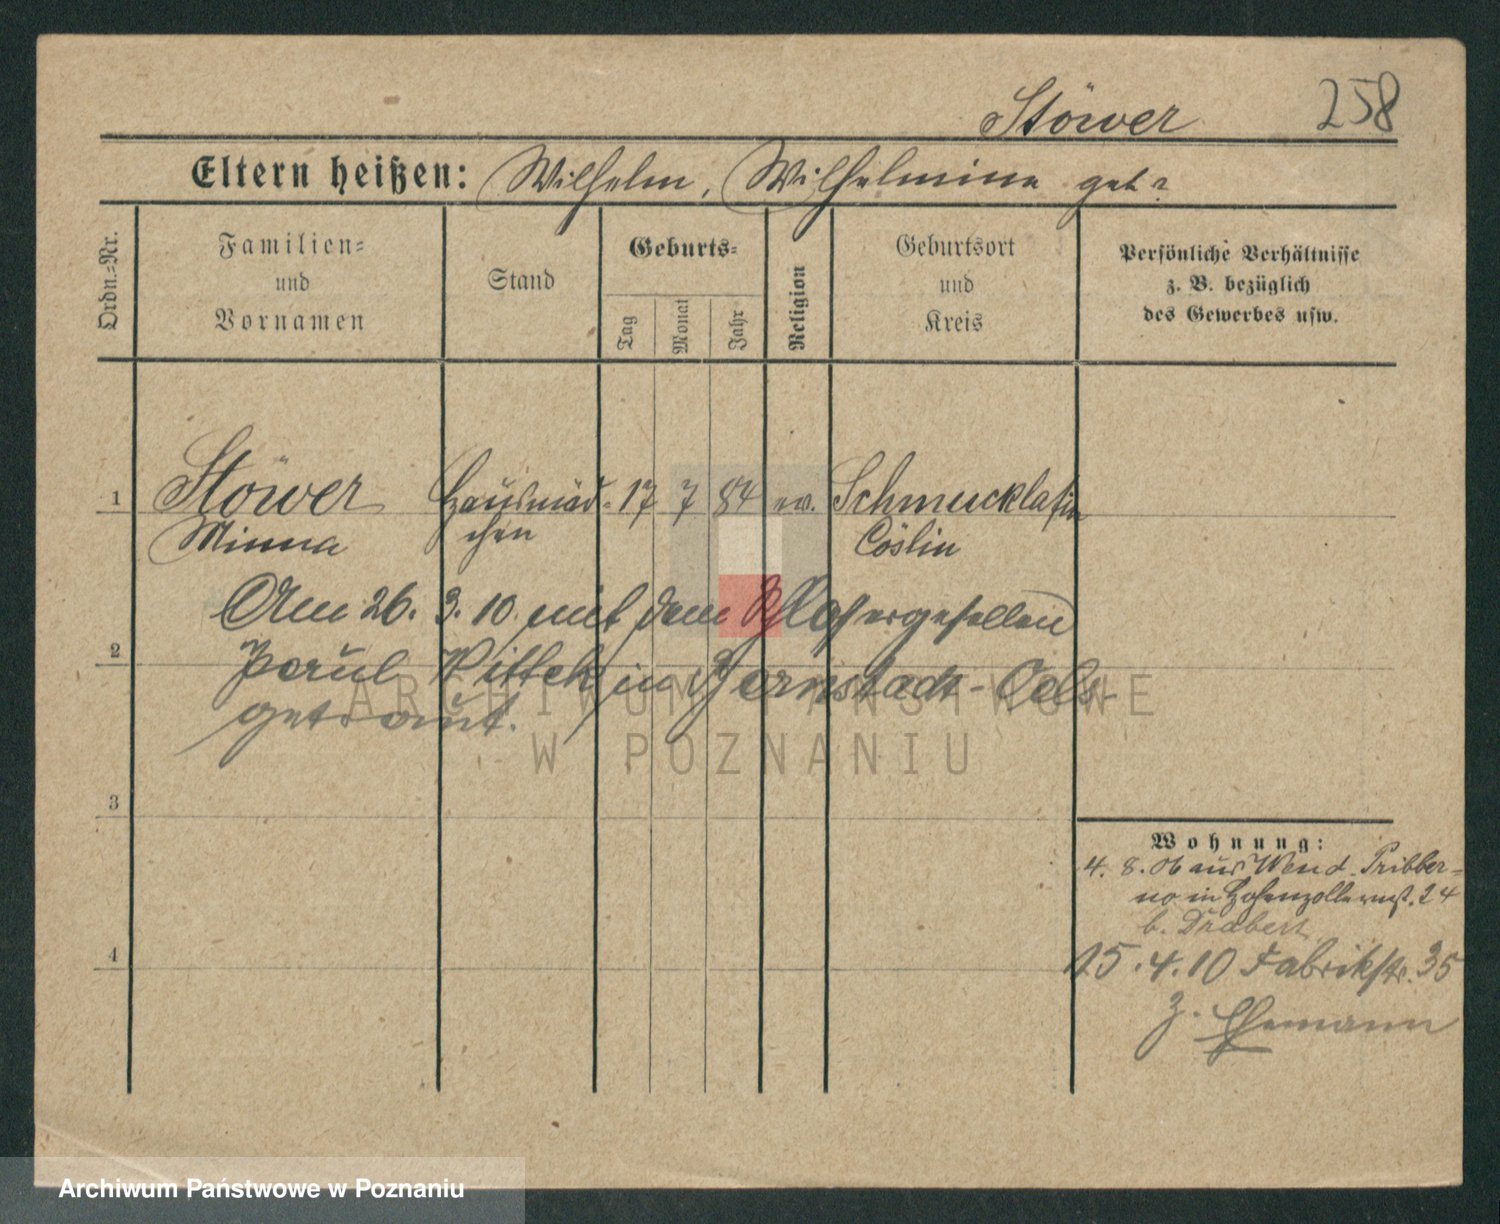 Stöwer 258
Eltern heißen: Wilhelm, Wilhelmine geb?
Ordn.-Nr.
Familien-
und
Vornamen
Stand
Geburts-
Tag
Monat
Jahr
Religion
Geburtsort
und
Kreis
Persönliche Verhältnisse
z. B. bezüglich
des Gewerbes usw.
1 Stöwer Hausmäd- 17 7 84 ev. Schmucklasin
Minna chen Cöslin
Am 26. 3. 10 mit dem Glasergesellen
2
Paul Wittek in Bernstadt-Oels
getraut.
3
Wohnung:
4. 8. 06 aus Wend. Pribber-
no in Hohenzollernst. 24
b. Drabert
4
15. 4. 10 Fabrikstr. 35
z. Ehemann
ARCHIWUM PAŃSTWOWE
W POZNANIU
Archiwum Państwowe w Poznaniu